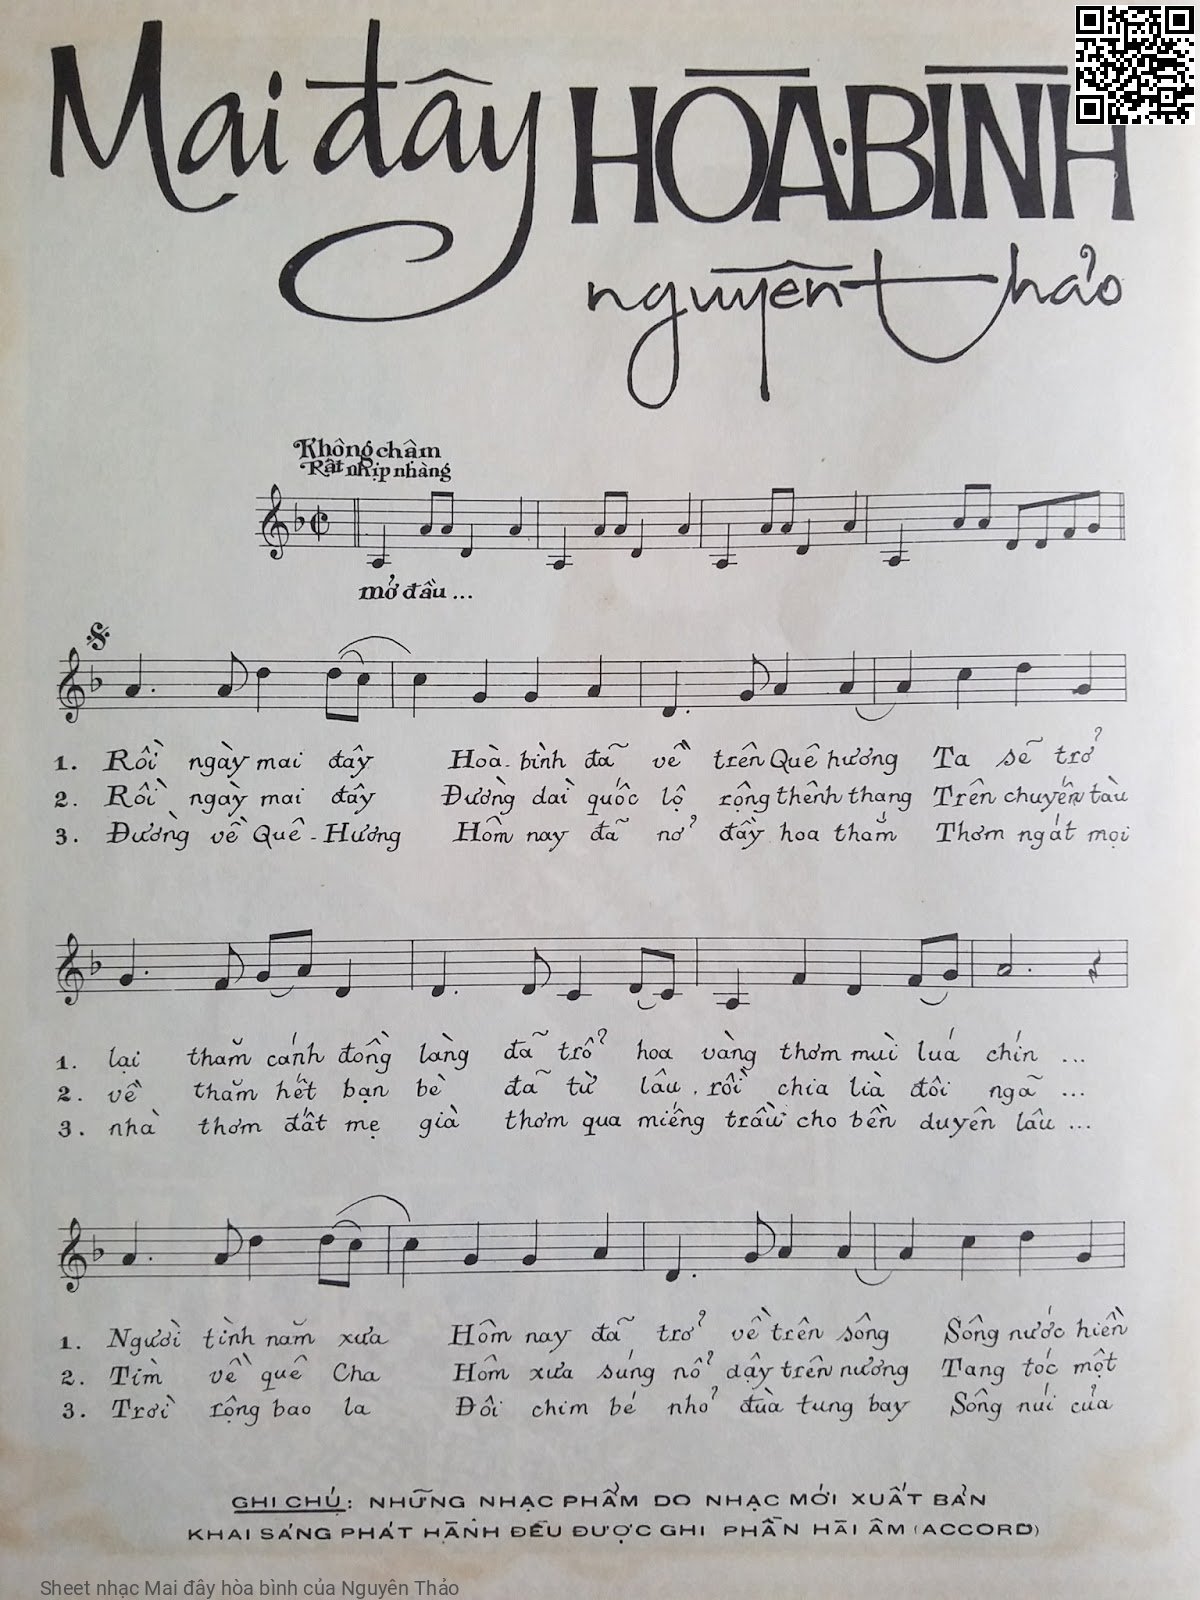 Mai đây HÒA·BÌNH
nguyên thảo
Không chậm
Rất nhịp nhàng
mở đầu ...
1. Rồi ngày mai đây Hoà-bình đã về trên Quê hương Ta sẽ trở
2. Rồi ngày mai đây Đường dài quốc lộ rộng thênh thang Trên chuyến tàu
3. Đường về Quê-Hương Hôm nay đã nở đầy hoa thắm Thơm ngát mọi
1. lại thăm cánh đồng làng đã trổ hoa vàng thơm mùi luá chín ...
2. về thăm hết bạn bè đã từ lâu, rồi chia lià đôi ngã ...
3. nhà thơm đất mẹ già thơm qua miếng trầu cho bền duyên lâu ...
1. Người tình năm xưa Hôm nay đã trở về trên sông Sông nước hiền
2. Tìm về quê Cha Hôm xưa súng nổ dậy trên nương Tang tóc một
3. Trời rộng bao la Đôi chim bé nhỏ đùa tung bay Sông núi của
GHI CHÚ: NHỮNG NHẠC PHẨM DO NHẠC MỚI XUẤT BẢN
KHAI SÁNG PHÁT HÀNH ĐỀU ĐƯỢC GHI PHẦN HÀI ÂM (ACCORD)
Sheet nhạc Mai đây hòa bình của Nguyên Thảo